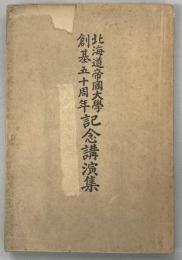 北海道帝國大學
創基五十周年
記念講演集